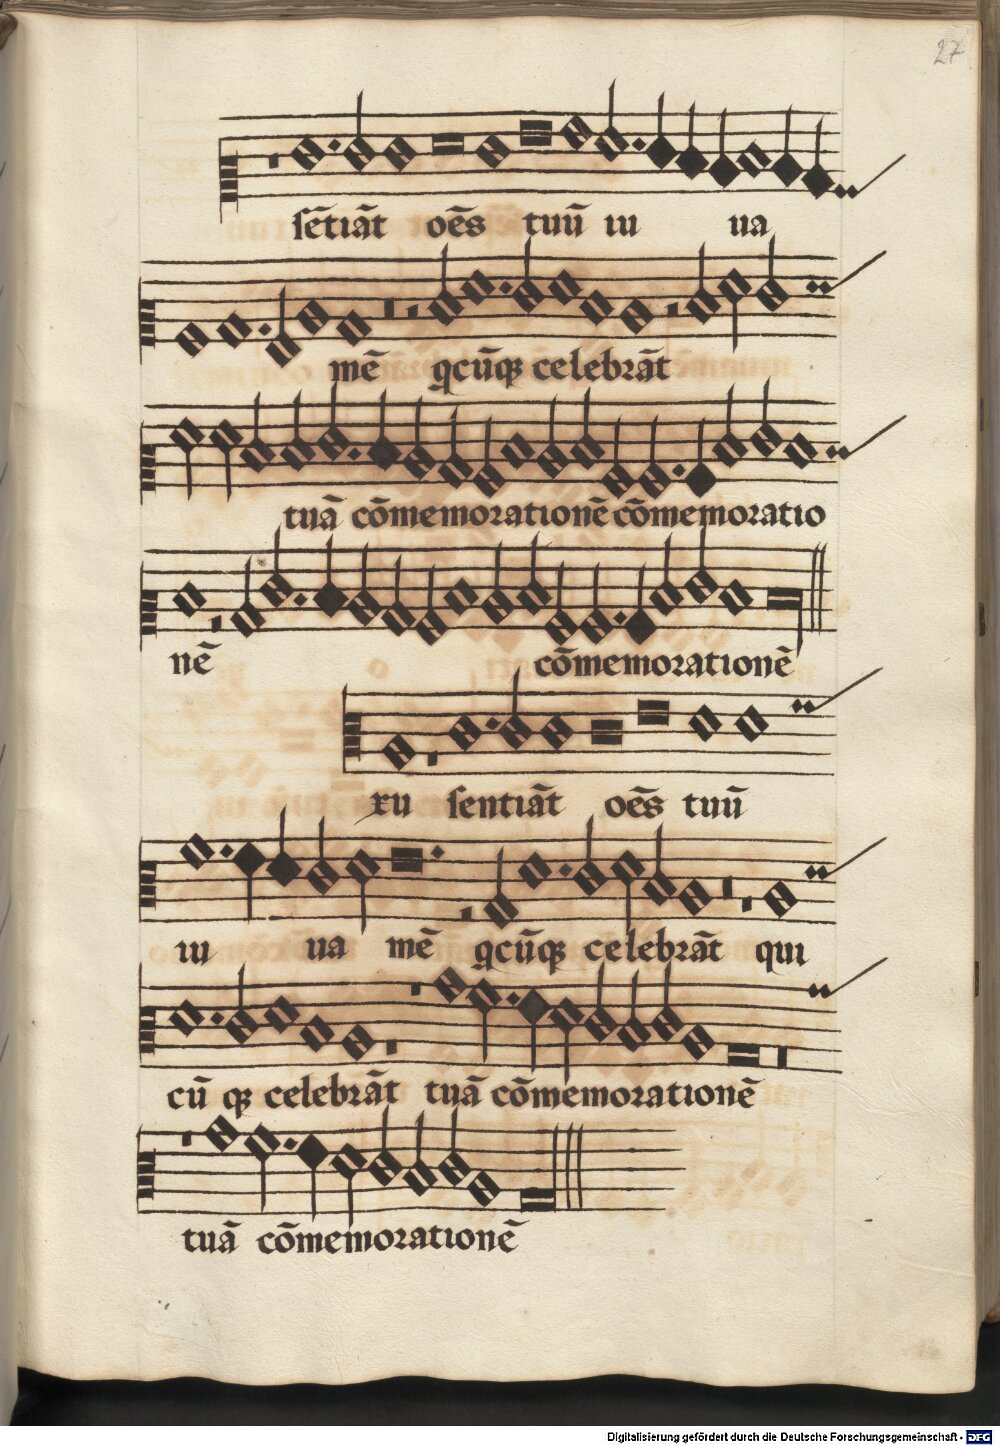 27
sẽtiãt oẽs tuũ iu ua
mẽ qcũqꝫ celebrãt
tuã cõmemorationẽ cõmemoratio
nẽ cõmemorationẽ
xu sentiãt oẽs tuũ
iu ua mẽ qcũqꝫ celebrãt qui
cũ qꝫ celebrãt tuã cõmemorationẽ
tuã cõmemorationẽ
Digitalisierung gefördert durch die Deutsche Forschungsgemeinschaft - DFG